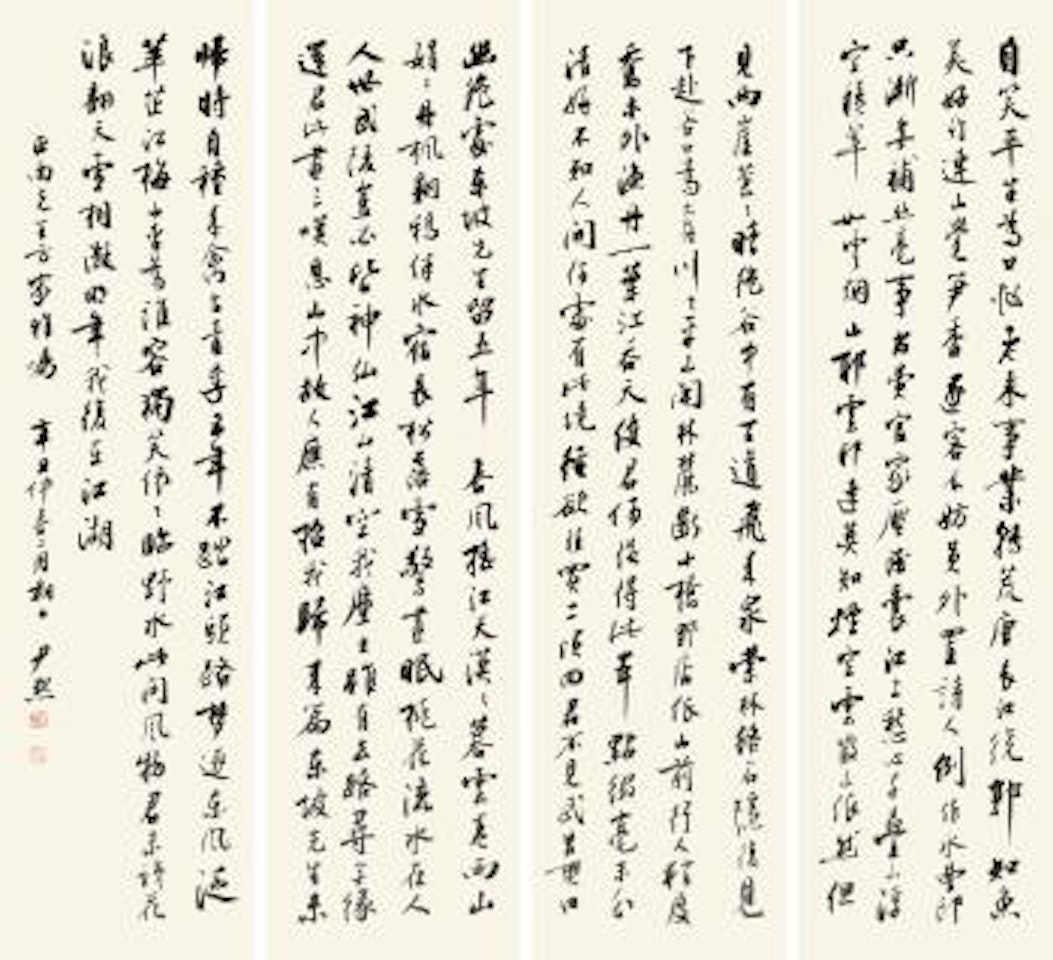 自笑平生為口忙老來事業轉荒唐長江繞郭知魚
美好竹連山覺笋香逐客不妨員外置詩人例作水曹郎
只漸無補絲毫事尚費官家壓酒囊江上愁心千疊山浮
空積翠如雲烟山耶雲耶遠莫知煙空雲散山依然但
見兩崖蒼々暗絕谷中有百道飛來泉縈林絡石隱復見
下赴谷口為奔川々平山開林麓斷小橋野店依山前行人稍度
喬木外漁舟一葉江吞天使君何從得此本點綴毫末分
清妍不知人間何處有此境徑欲往買二頃田君不見武昌樊口
幽絕處東坡先生留五年春風搖江天漠々暮雲卷雨山
娟々丹楓翻鴉伴水宿長松落雪驚晝眠桃花流水在人
人世武陵豈必皆神仙江山清空我塵土雖有去路尋無緣
還君此畫三嘆息山中故人應有招我歸來篇東坡先生未
歸時自種來禽與青李五年不踏江頭路夢逐東風泛
蘋芷江梅山杏為誰容獨笑依々臨野水此間風物君未識花
浪翻天雪相激明年我復在江湖
先生方家雅囑 辛丑仲春二月 尹默